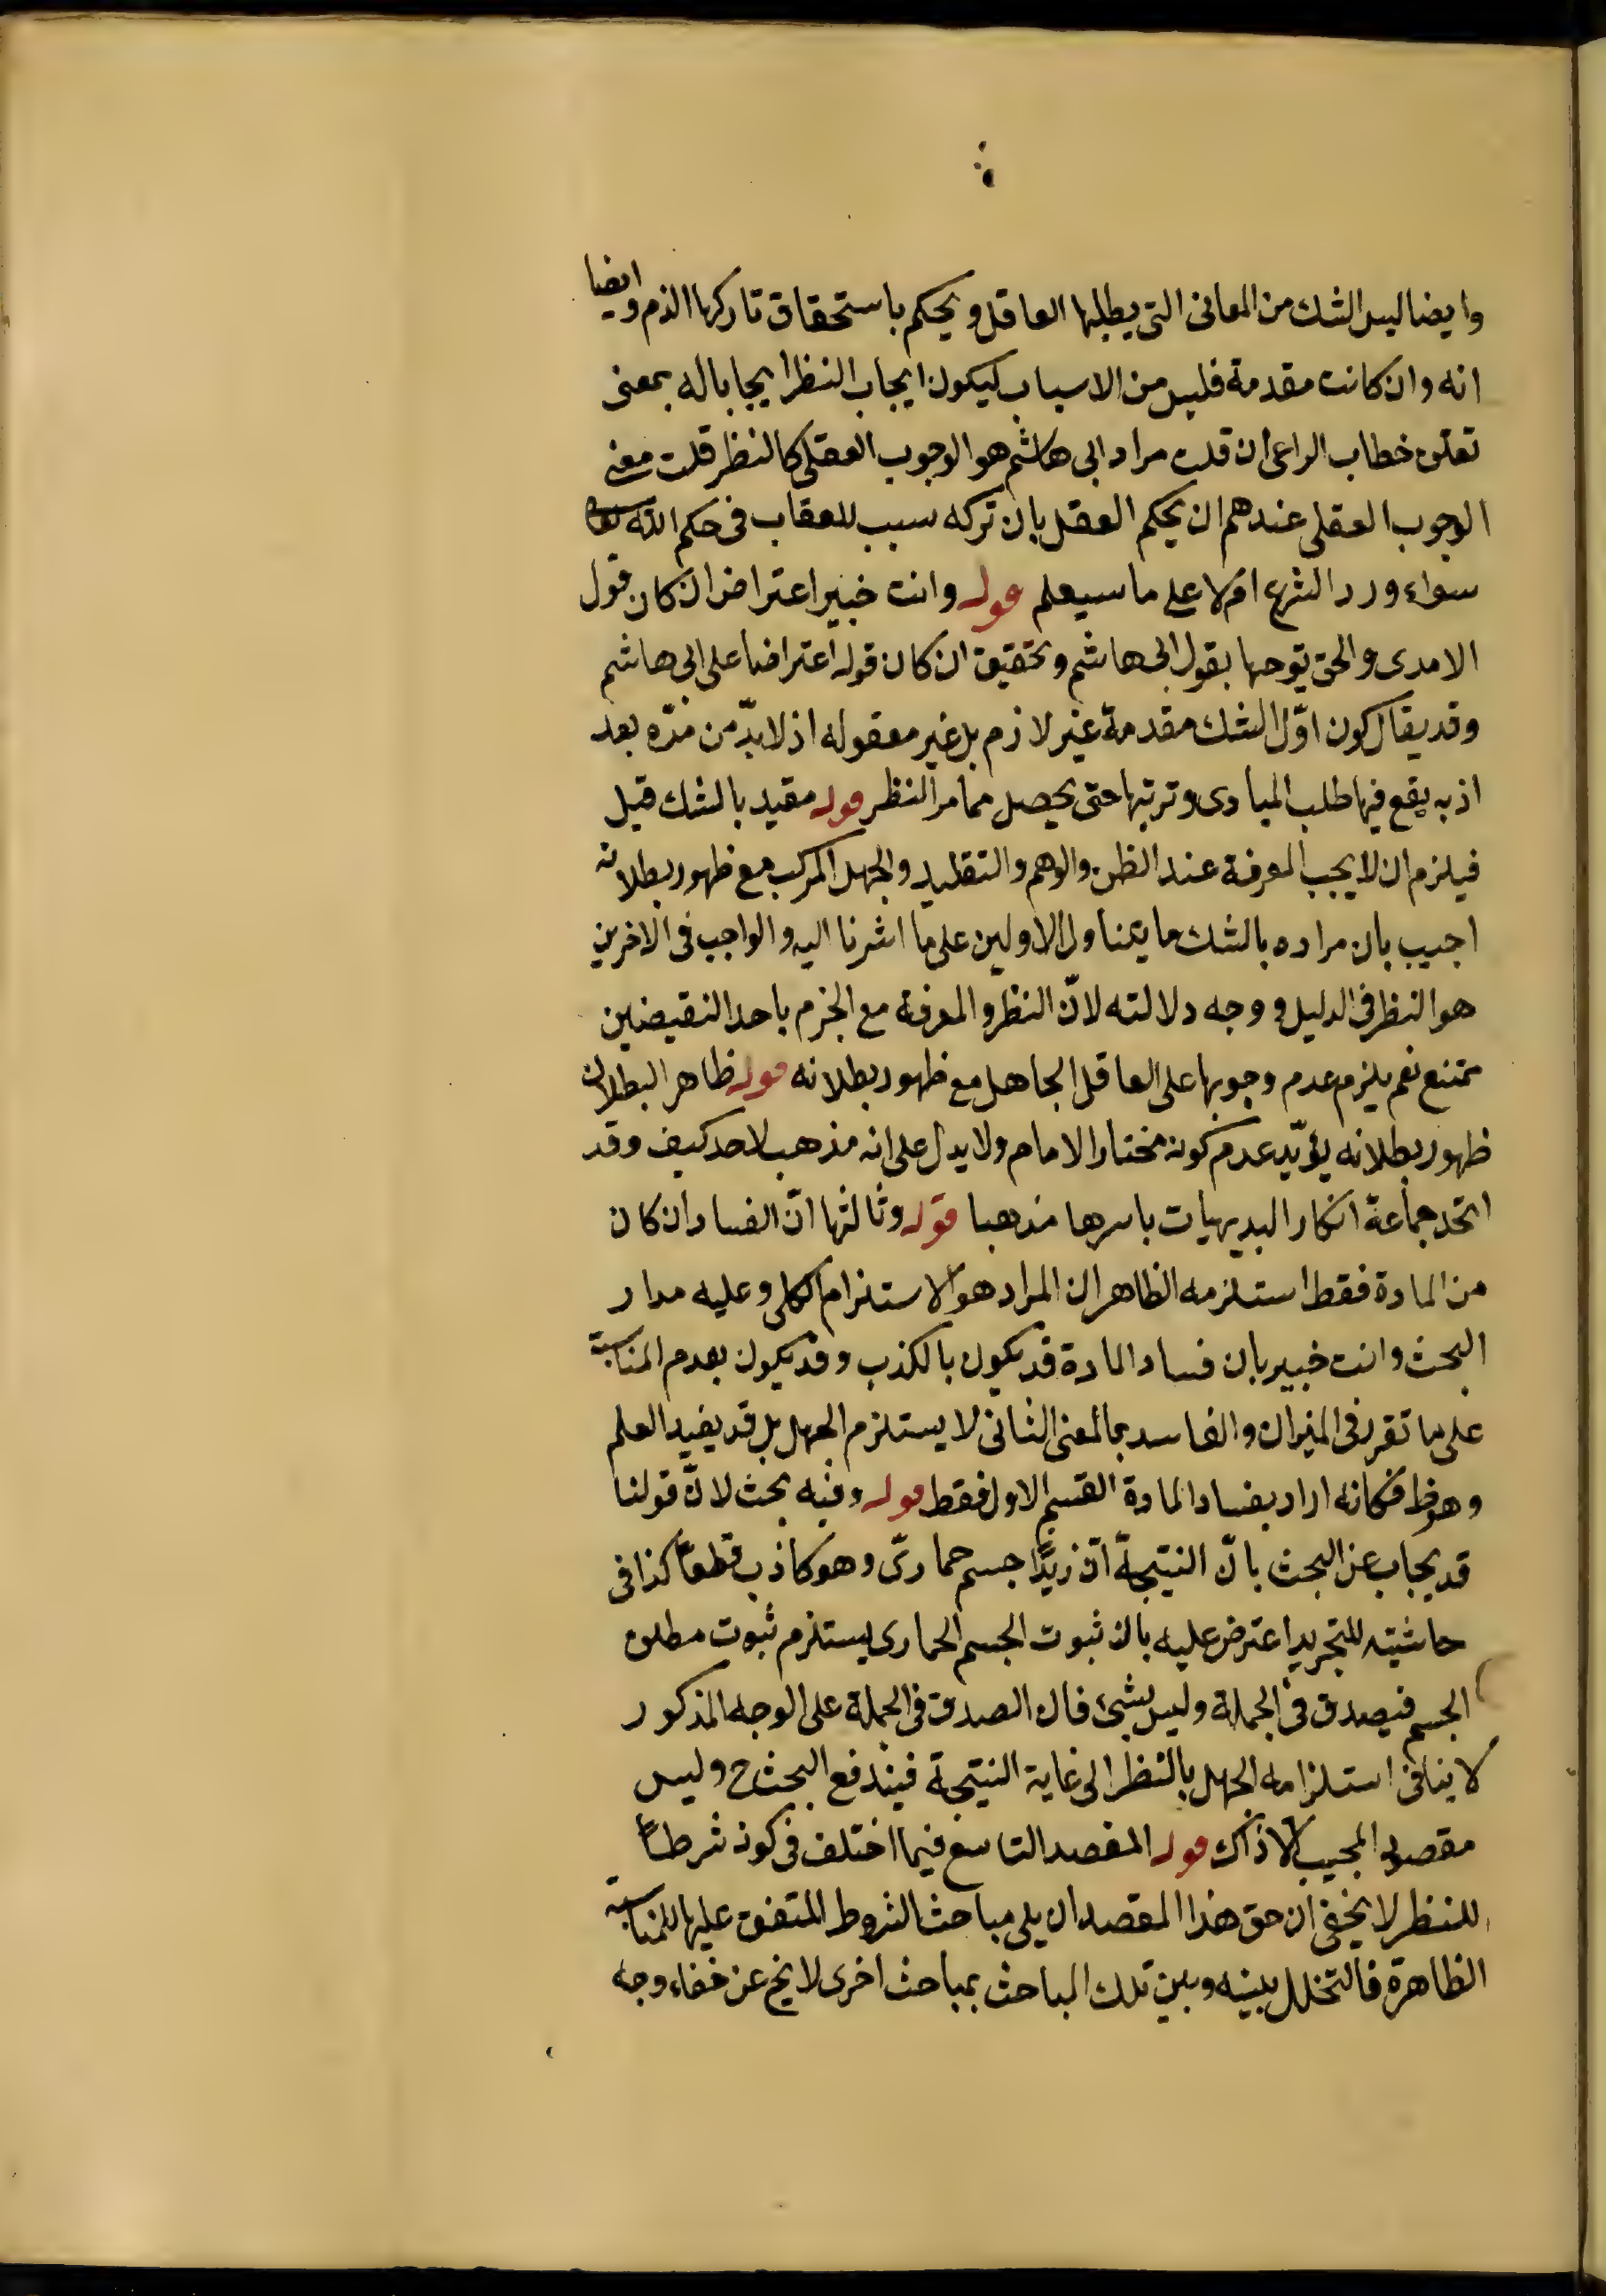 وايضا ليس الشك من المعانى التى يطلبها العاقل ويحكم باستحقاق تاركها الذم وايضا
انه وان كانت مقدمة فليس من الاسباب ليكون ايجاب النظر ايجابا له بمعنى
تعلق خطاب الراعى ان قلت مراد ابى هاشم هو الوجوب العقلى كالنظر قلت معنى
الوجوب العقلى عندهم ان يحكم العقل بان تركه سبب للعقاب فى حكم الله تعا
سواء ورد الشرع ام لا على ما سيعلم قوله وانت خبير اعتراض ان كان قول
الامدى والحق توجها بقول ابى هاشم وتحقيق ان كان قوله اعتراضا على ابى هاشم
وقد يقال كون اوّل الشك مقدمة غير لازم بل غير معقوله اذ لابدّ من مدّه بعد
اذ به يقع فيها طلب المبادى وترتبها حتى يحصل ممامر النظر قوله مقيد بالشك قيل
فيلزم ان لا يجب المعرفة عند الظن والوهم والتقليد والجهل المركب مع ظهور بطلانه
اجيب بان مراده بالشك ما يتناول الاولين على ما اشرنا اليه والواجب فى الاخرين
هو النظر فى الدليل ووجه دلالته لانّ النظر والمعرفة مع الجزم باحد النقيضين
ممتنع نعم يلزم عدم وجوبها على العاقل الجاهل مع ظهور بطلانه قوله ظاهر البطلان
ظهور بطلانه يؤيّد عدم كونه مختار الامام ولا يدل على انه مذهب لاحد كيف وقد
اتخد جماعة انكار البديهيات باسرها مذهبا قوله وثالثها انّ الفساد ان كان
من المادة فقط استلزمه الظاهر ان المراد هو الاستلزام الكلى وعليه مدار
البحث وانت خبير بان فساد المادة قد يكون بالكذب وقد يكون بعدم المناسبة
على ما تقرر فى الميزان والفاسد بالمعنى الثانى لا يستلزم الجهل بل قد يفيد العلم
وهو ظ فكانه اراد بفساد المادة القسم الاول فقط قوله وفيه بحث لانّ قولنا
قد يجاب عن البحث بانّ النتيجة انّ زيدًا جسم حمارىّ وهو كاذب قطعًا كذا فى
حاشيته للتجريد اعترض عليه بان ثبوت الجسم الحمارى يستلزم ثبوت مطلق
الجسم فيصدق فى الجملة وليس بشئ فان الصدق فى الجملة على الوجه المذكور
لا ينافى استلزامه الجهل بالنظر الى غاية النتيجة فيندفع البحث ح وليس
مقصود المجيب الا ذاك قوله المقصد التاسع فيما اختلف فى كونه شرطًا
للنظر لا يخفى ان حق هذا المقصد ان يلى مباحث الشروط المتفق عليها للمناسبة
الظاهرة فالتخلل بينه وبين تلك المباحث بمباحث اخرى لا يخ عن خفاء وجه